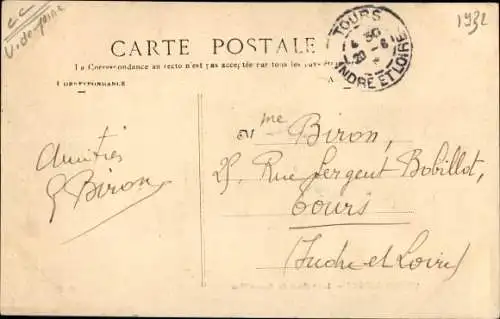 1932
TOURS
4 30
20 - 6
*
INDRE ET LOIRE
CARTE POSTALE
La Correspondance au recto n'est pas acceptée par tous les pays
CORRESPONDANCE
Mme Biron,
25, Rue Sergent Bobillot,
Tours
(Indre et Loire)
Amitiés
G Biron